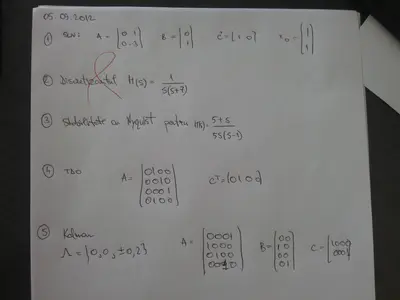 05.09.2012
① A = (0 1 0 -3) B = (0 1) Cᵀ = [1 0] x₀ = (1 1)
② H(s) = 1/s(s+7)
③ Stabilitate cu Nyquist pentru H(s) = s+5/5s(s-1)
④ TDO
A = (0100 0010 0001 0100) Cᵀ = (0100)
⑤ Kalman
Λ = {0,0, ±0,2} A = (0001 1000 0100 0010) B = (00 10 00 01) C = [1000 0001]